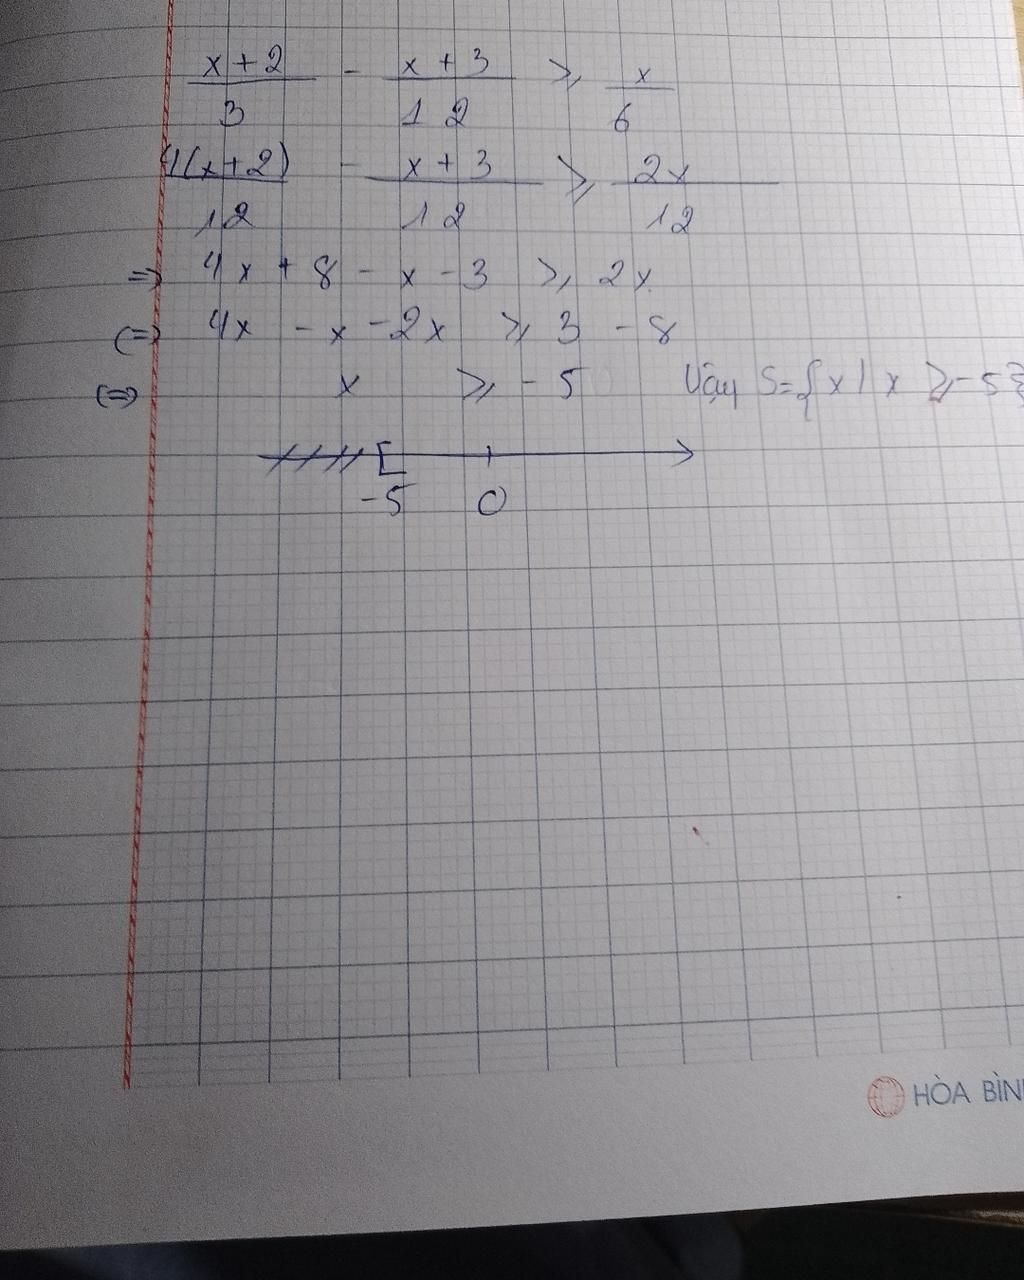 x + 2 / 3 - x + 3 / 12 ⩾ x / 6
4(x+2) / 12 - x + 3 / 12 ⩾ 2x / 12
=> 4x + 8 - x - 3 ⩾ 2x
(=) 4x - x - 2x ⩾ 3 - 8
(=> x ⩾ - 5 Vậy S={x | x ⩾ - 5}
-5 0
HÒA BÌN